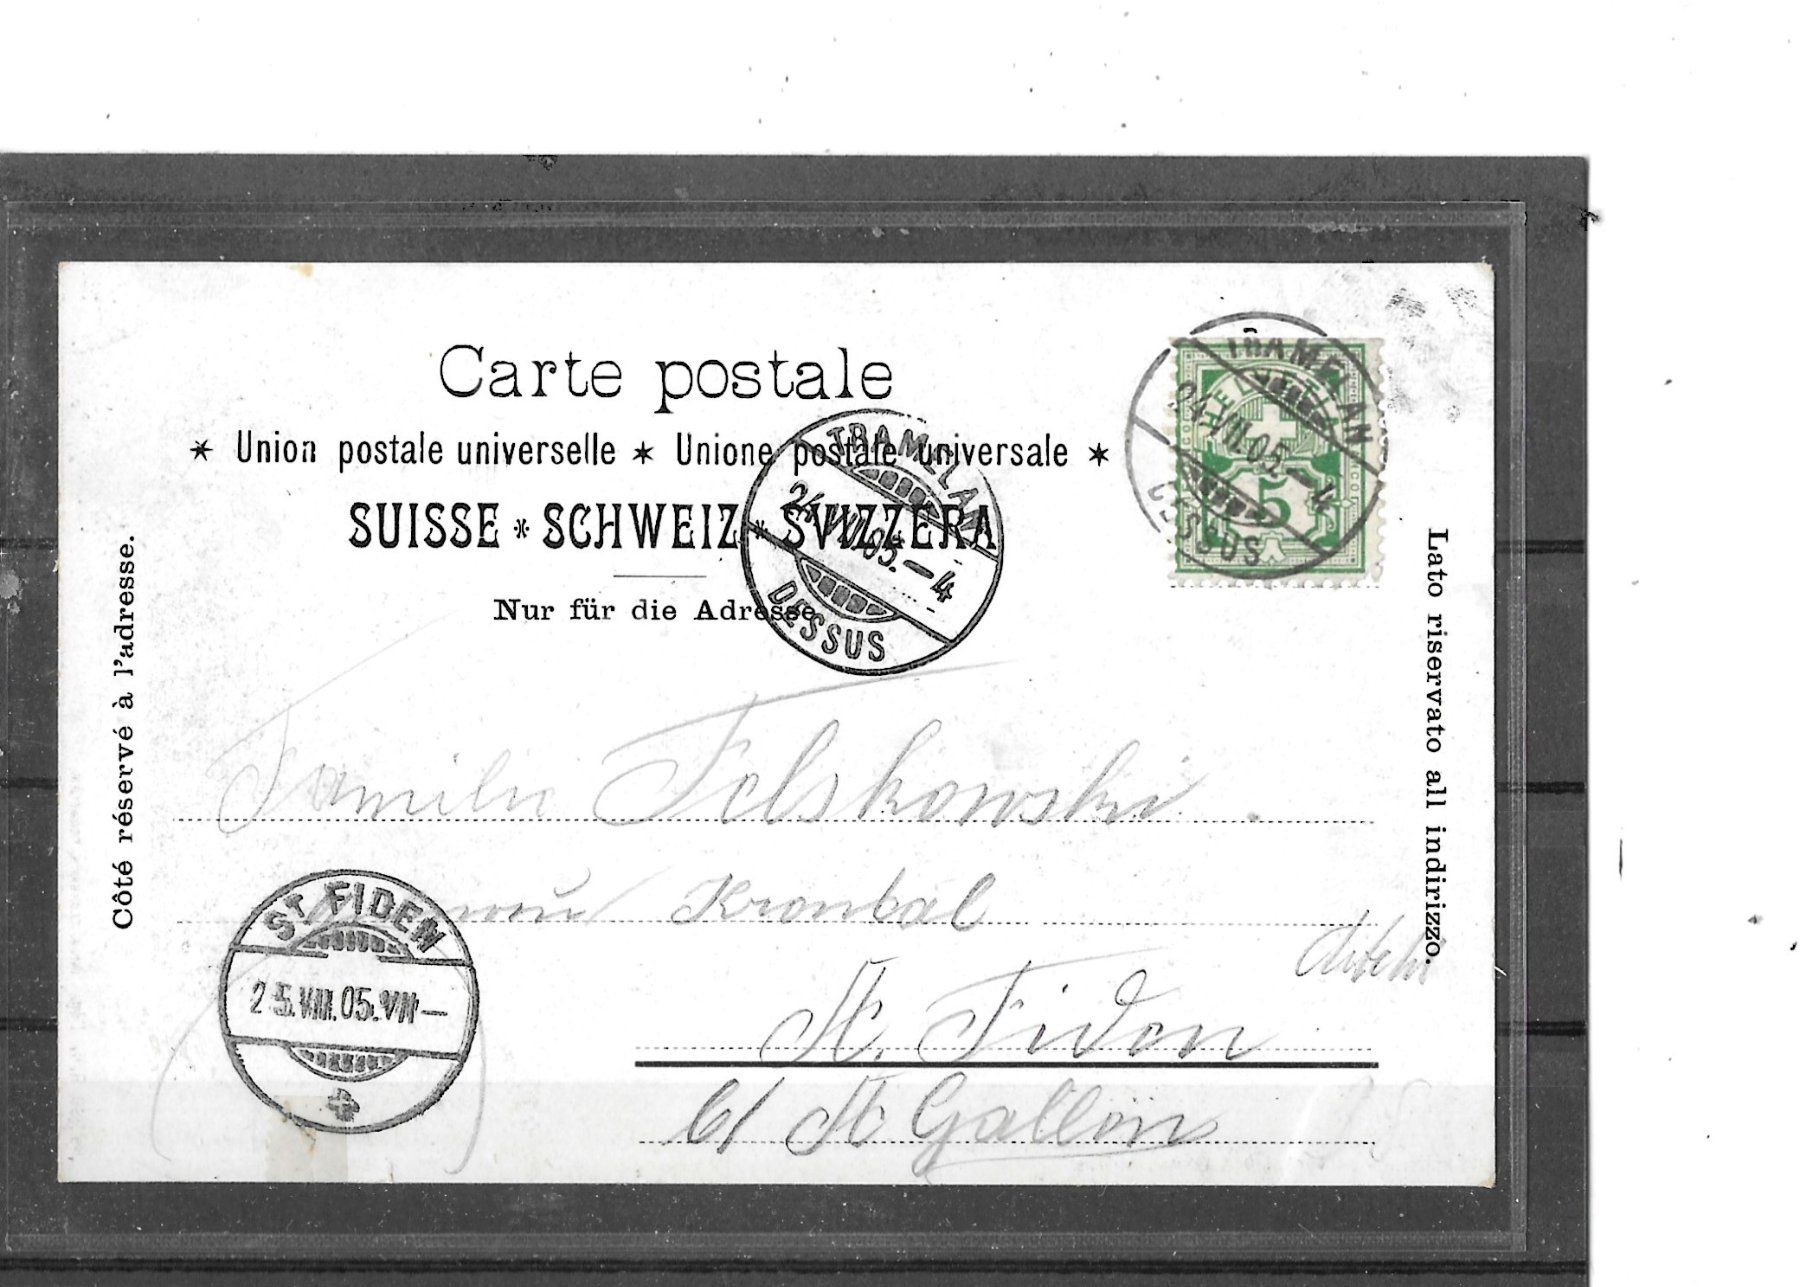 Carte postale
* Union postale universelle * Unione postale universale *
SUISSE * SCHWEIZ * SVIZZERA
Nur für die Adresse
Côté réservé à l'adresse.
Lato riservato all indirizzo.
TRAMELAN
24.VIII.05.-4
DESSUS
HELVETIA
5
TRAMELAN
24.VIII.05.-4
DESSUS
Familie Felskowski.
Kronbal
St. Fiden
b/ St Gallen
ST. FIDEN
25.VIII.05.VII-